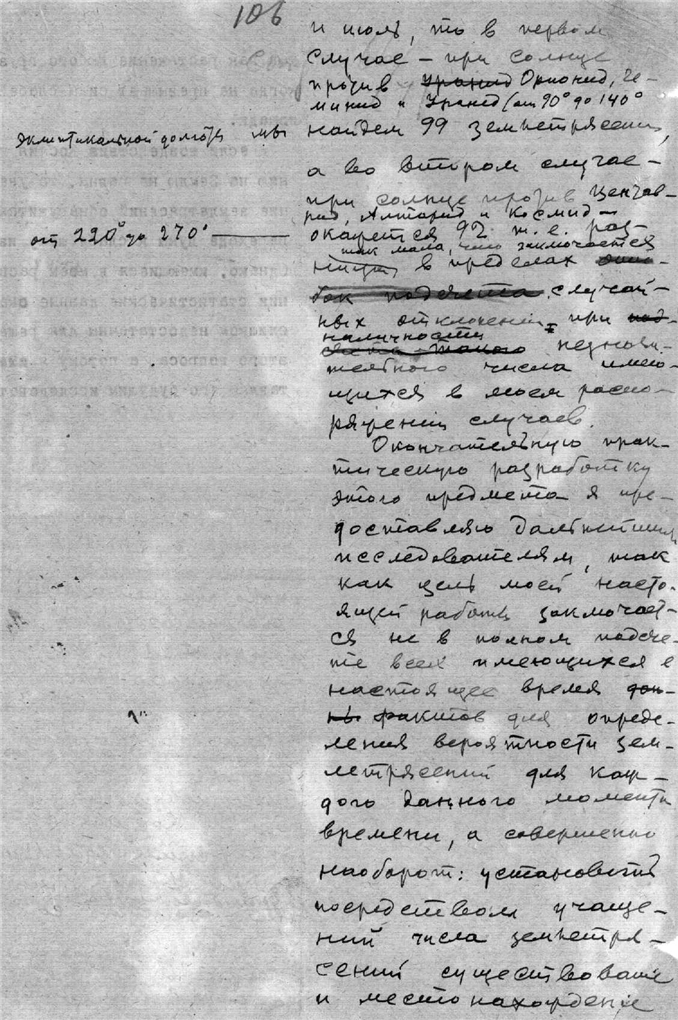 106
и июль, то в первом
случае – при солнце
против Орионид, Ге-
минид и Уранид (от 90° до 140°
эклиптикальной долготы мы
найдем 99 землетрясений,
а во втором случае –
при солнце против Центав-
рид, Алтарид и Космид –
от 220° до 270°
окажется 92, т. е. раз-
так мала, что заключается
в пределах
бок подсчета случай-
ных отклонений при
наличности
незначи-
тельного числа имею-
щихся в моем распо-
ряжении случаев.
Окончательную прак-
тическую разработку
этого предмета я пре-
доставляю дальнейшим
исследователям, так
как цель моей насто-
ящей работы заключает-
ся не в полном подсче-
те всех имеющихся в
настоящее время дан-
ны фактов для опреде-
ления вероятности зем-
летрясений для каж-
дого данного момента
времени, а совершенно
наоборот: установить
посредством учаще-
ний числа землетря-
сений существование
и местонахождение